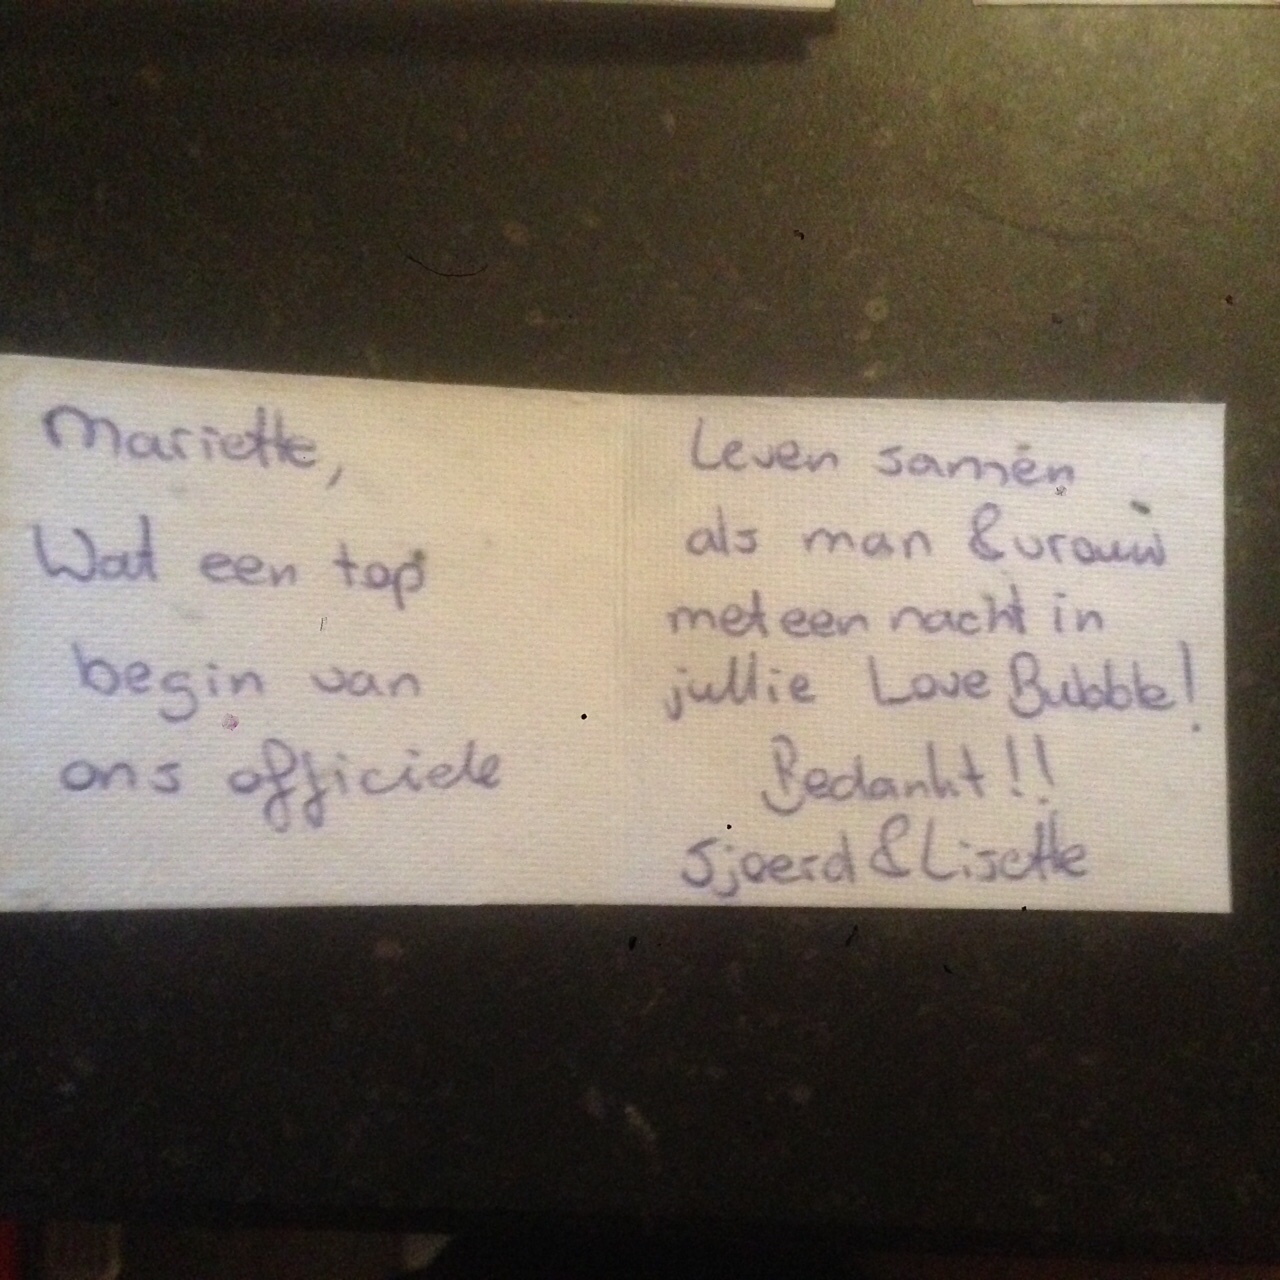 Mariette,
Wat een top
begin van
ons officiele
Leven samen
als man & vrouw
met een nacht in
jullie Love Bubble!
Bedankt!!
Sjoerd & Lisette